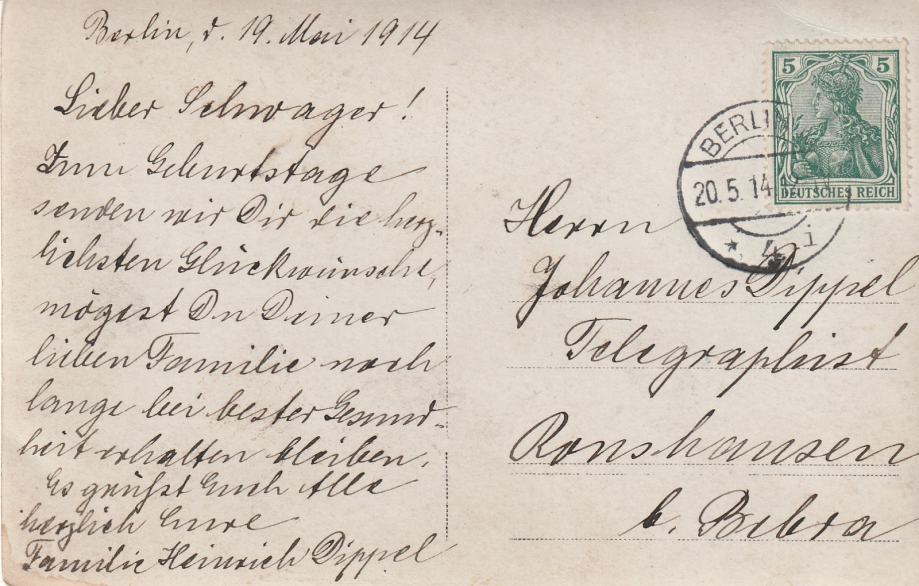 Berlin, d. 19. Mai 1914
Lieber Schwager!
Zum Geburtstage
senden wir Dir die herz-
lichsten Glückwünsche,
mögest Du Deiner
lieben Familie noch
lange bei bester Gesund-
heit erhalten bleiben.
Es grüßt Euch Alle
herzlich Eure
Familie Heinrich Dippel
5 5
DEUTSCHES REICH
BERLIN
20.5.14
* 4 i
Herrn
Johannes Dippel
Telegraphist
Ronshausen
b. Bebra